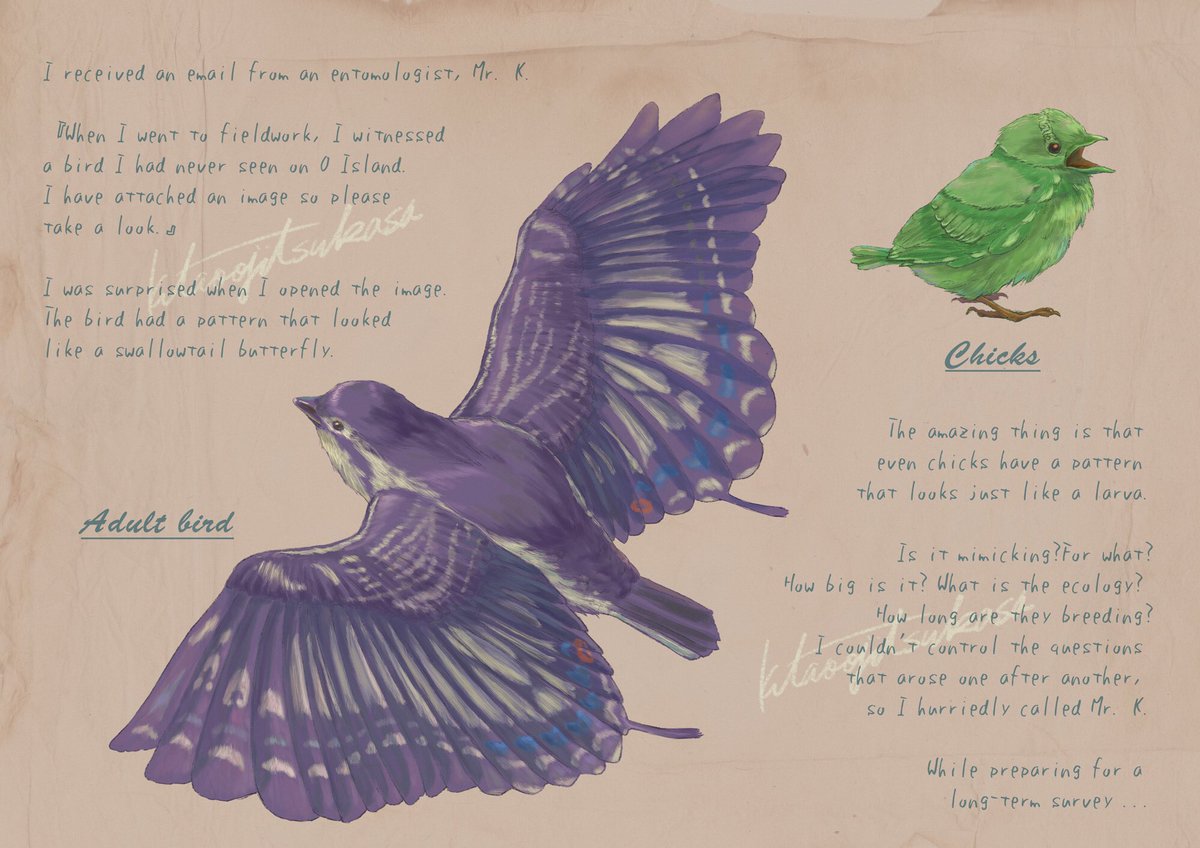 I received an email from an entomologist, Mr. K.
『When I went to fieldwork, I witnessed
a bird I had never seen on O Island.
I have attached an image so please
take a look.』
ktaoojitsukasa
I was surprised when I opened the image.
The bird had a pattern that looked
like a swallowtail butterfly.
Adult bird
Chicks
The amazing thing is that
even chicks have a pattern
that looks just like a larva.
Is it mimicking?For what?
How big is it? What is the ecology?
How long are they breeding?
I couldn't control the questions
that arose one after another,
so I hurriedly called Mr. K.
ktaoojitsukasa
While preparing for a
long-term survey ...